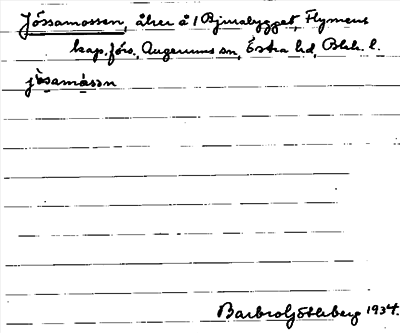 Jössamossen, åker å 1 Bjmabygget, Flymens
kap.förs., Augerums sn, Östra hd, Blek. l.
jòsamåsn
Barbro Götleberg 1934.